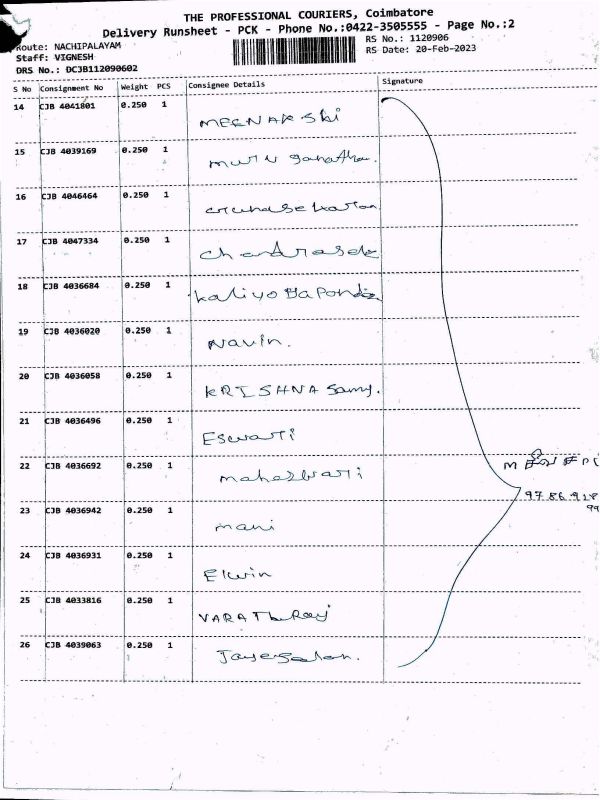 THE PROFESSIONAL COURIERS, Coimbatore
Delivery Runsheet - PCK - Phone No.:0422-3505555 - Page No.:2
Route: NACHIPALAYAM
RS No.: 1120906
Staff: VIGNESH
RS Date: 20-Feb-2023
DRS No.: DCJB112090602
S No Consignment No Weight PCS Consignee Details Signature
14 CJB 4041801 0.250 1 MEENAKShi
15 CJB 4039169 0.250 1
16 CJB 4046464 0.250 1
17 CJB 4047334 0.250 1
18 CJB 4036684 0.250 1
19 CJB 4036020 0.250 1 Navin.
20 CJB 4036058 0.250 1 KRISHNA Samy.
21 CJB 4036496 0.250 1 Eswari
22 CJB 4036692 0.250 1
23 CJB 4036942 0.250 1 mani
24 CJB 4036931 0.250 1 Elwin
25 CJB 4033816 0.250 1 VARATHRaj
26 CJB 4039063 0.250 1